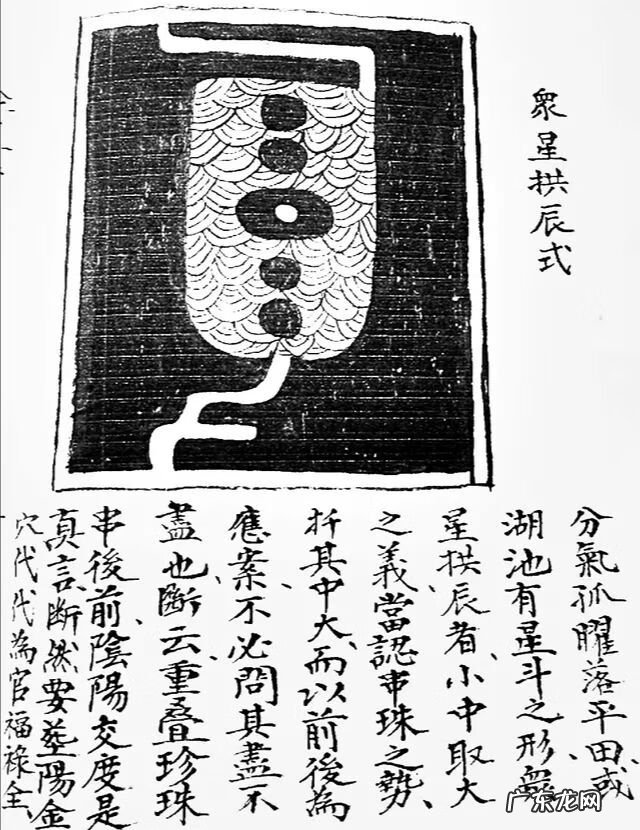 衆星拱辰式
分氣孤曜落平田、或
湖池有星斗之形、衆
星拱辰者、小中取大
之義、當認串珠之勢、
扦其中大、而以前後為
應案、不必問其盡不
盡也、斷云、重叠珍珠
串後前陰陽交度是
真言、斷然要塟陽金
穴代代為官福祿全、
广东龙网